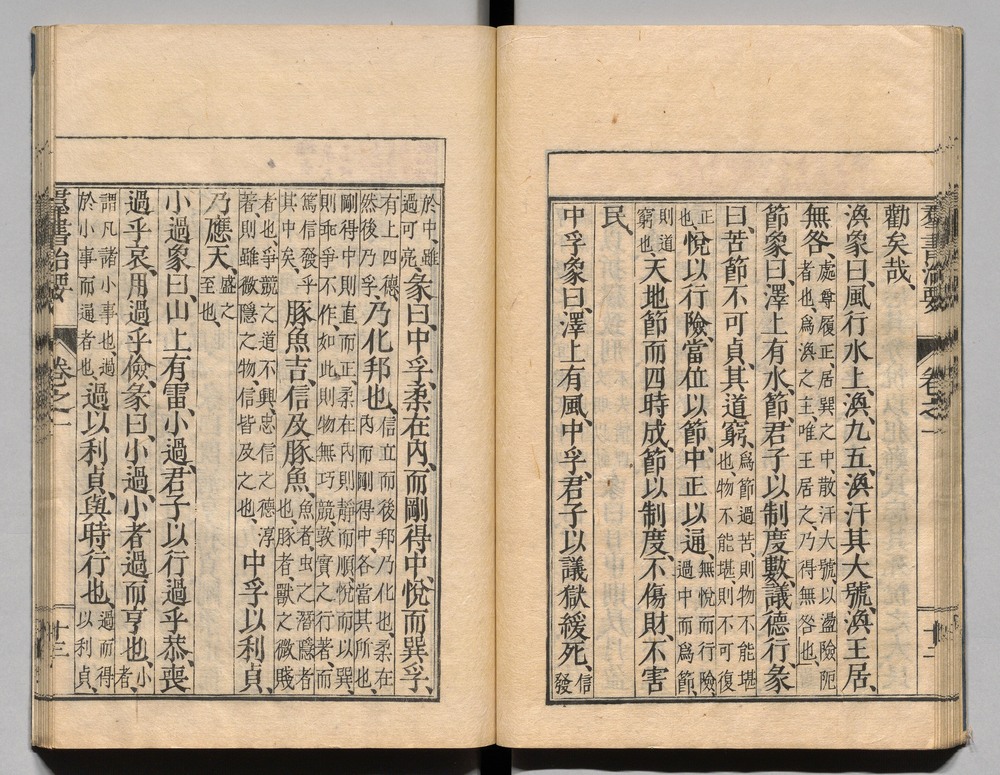 羣書治要 卷之一 十二
勸矣哉、
渙象曰、風行水上、渙、九五、渙汗其大號、渙王居、
無咎、處尊履正、居巽之中、散汗大號、以盪險阨
者也、爲渙之主、唯王居之、乃得無咎也、
節象曰、澤上有水、節、君子以制度數、議德行、彖
曰、苦節不可貞、其道窮也、爲節過苦、則物不能堪
也、物不能堪、則不可復
正也、悅以行險、當位以節、中正以通、無悅而行險
過中而爲節、
則道
窮也、天地節而四時成、節以制度、不傷財、不害
民、
中孚象曰、澤上有風、中孚、君子以議獄緩死、信
發
於中、雖
過可亮、彖曰、中孚、柔在內、而剛得中、悅而巽、孚、
有上四德、
然後乃孚、乃化邦也、信立而後邦乃化也、柔在
內而剛得中、各當其所也、
剛得中、則直而正、柔在內、則靜而順、悅而以巽、
則乖爭不作、如此、則物無巧競、敦實之行著、而
篤信發乎
其中矣、豚魚吉、信及豚魚也、魚者、虫之潛隱者
也、豚者、獸之微賤
者也、爭競之道不興、忠信之德淳
著、則雖微隱之物、信皆及之也、中孚以利貞、
乃應天、盛之
至也、
小過象曰、山上有雷、小過、君子以行過乎恭、喪
過乎哀、用過乎儉、彖曰、小過、小者過而亨也、小
者、
謂凡諸小事也、過
於小事而通者也、過以利貞、與時行也、過而得
以利貞、
羣書治要 卷之一 十三